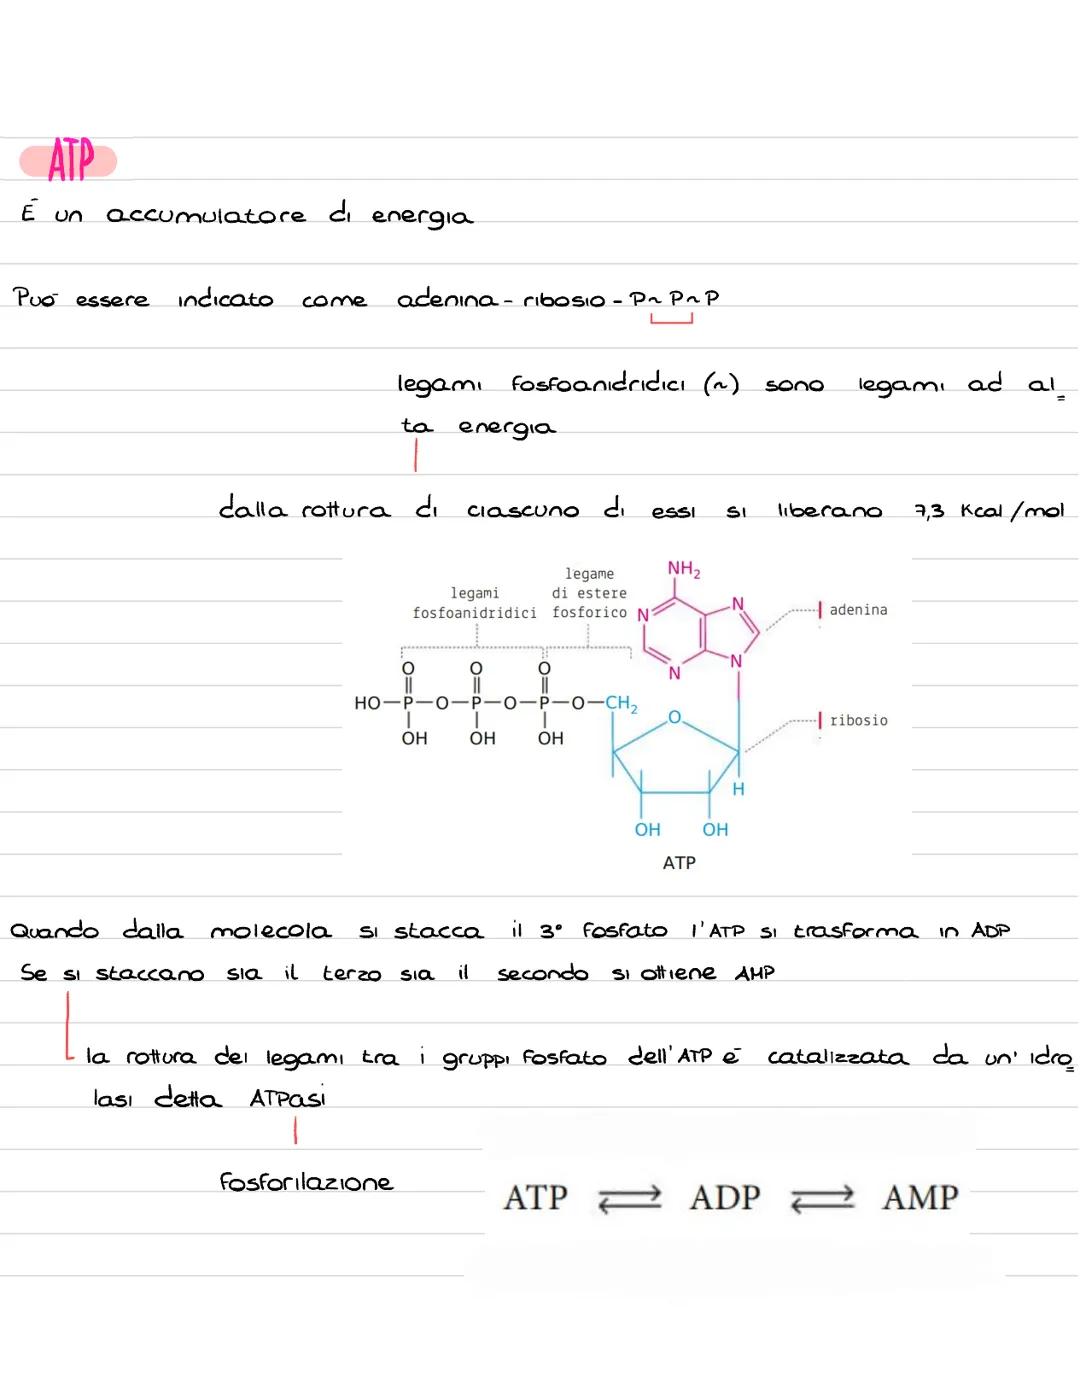 ATP
È un accumulatore di energia
Può essere indicato come adenina - ribosio - P~P~P
legami fosfoanidridici (~) sono legami ad al=
ta energia
dalla rottura di ciascuno di essi si liberano 7,3 Kcal/mol
legami
fosfoanidridici
legame
di estere
fosforico
NH₂
N
N
N
N
adenina
O O O
HO-P-O-P-O-P-O-CH₂
OH OH OH
O
ribosio
H
OH OH
ATP
Quando dalla molecola si stacca il 3° fosfato l'ATP si trasforma in ADP
Se si staccano sia il terzo sia il secondo si ottiene AMP
la rottura dei legami tra i gruppi fosfato dell'ATP è catalizzata da un' idro=
lasi detta ATPasi
fosforilazione
ATP ⇄ ADP ⇄ AMP